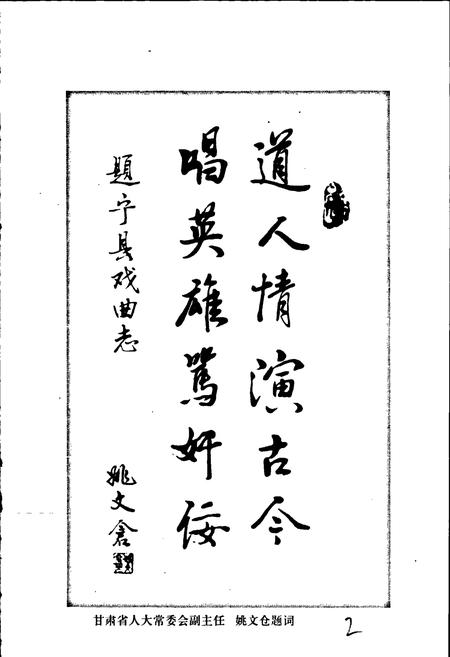 道人情演古今
唱英雄骂奸佞
题宁县戏曲志
姚文仓
甘肃省人大常委会副主任 姚文仓题词
2